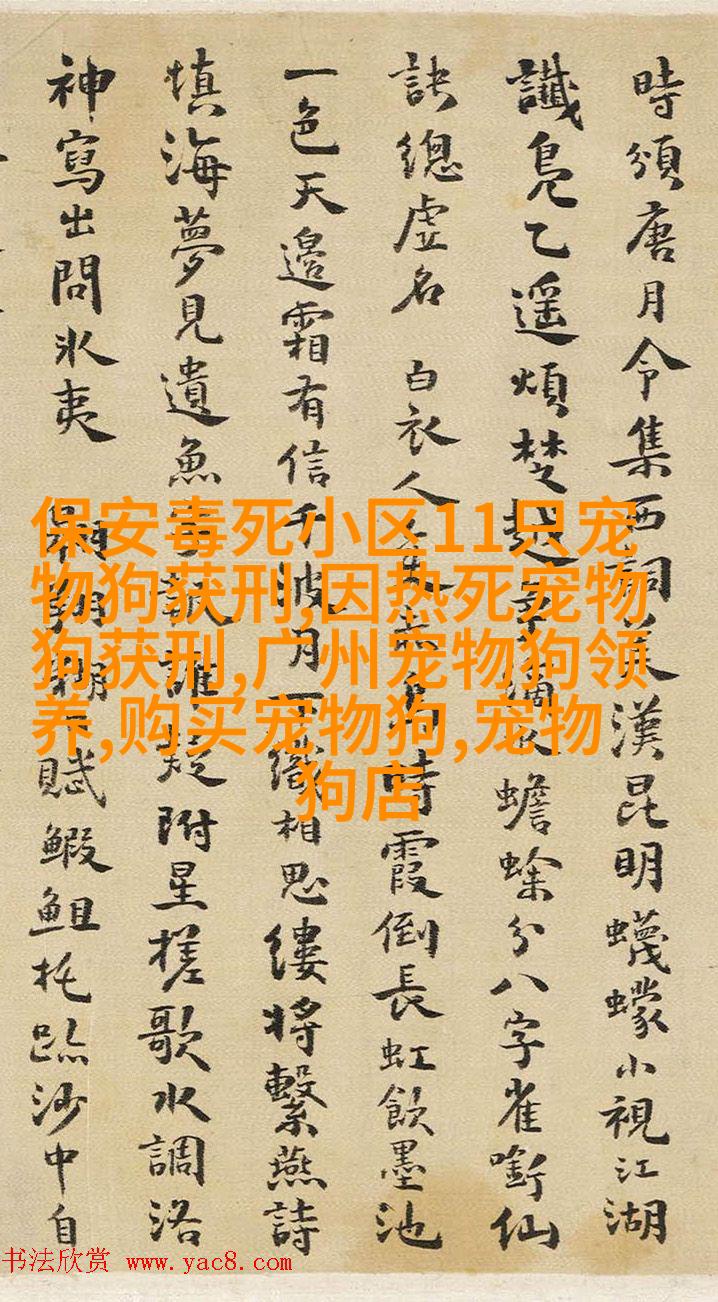 時頒唐月令集西詞漢昆明蠛蠓小視江湖
讖鳧乙遥煩楚越蟾蜍分八字雀銜仙
訣總虚名 白衣人時霞倒長虹飲墨池
一色天邊霜有信千波月織相思縷將繫燕詩
填海夢見遺魚誰疑附星槎歌水調洛
神寫出問氷夷 賦鰕鉏托跡沙中自
保安毒死小区11只宠
物狗获刑,因热死宠物
狗获刑,广州宠物狗领
养,购买宠物狗,宠物
狗店
书法欣赏 www.yac8.com